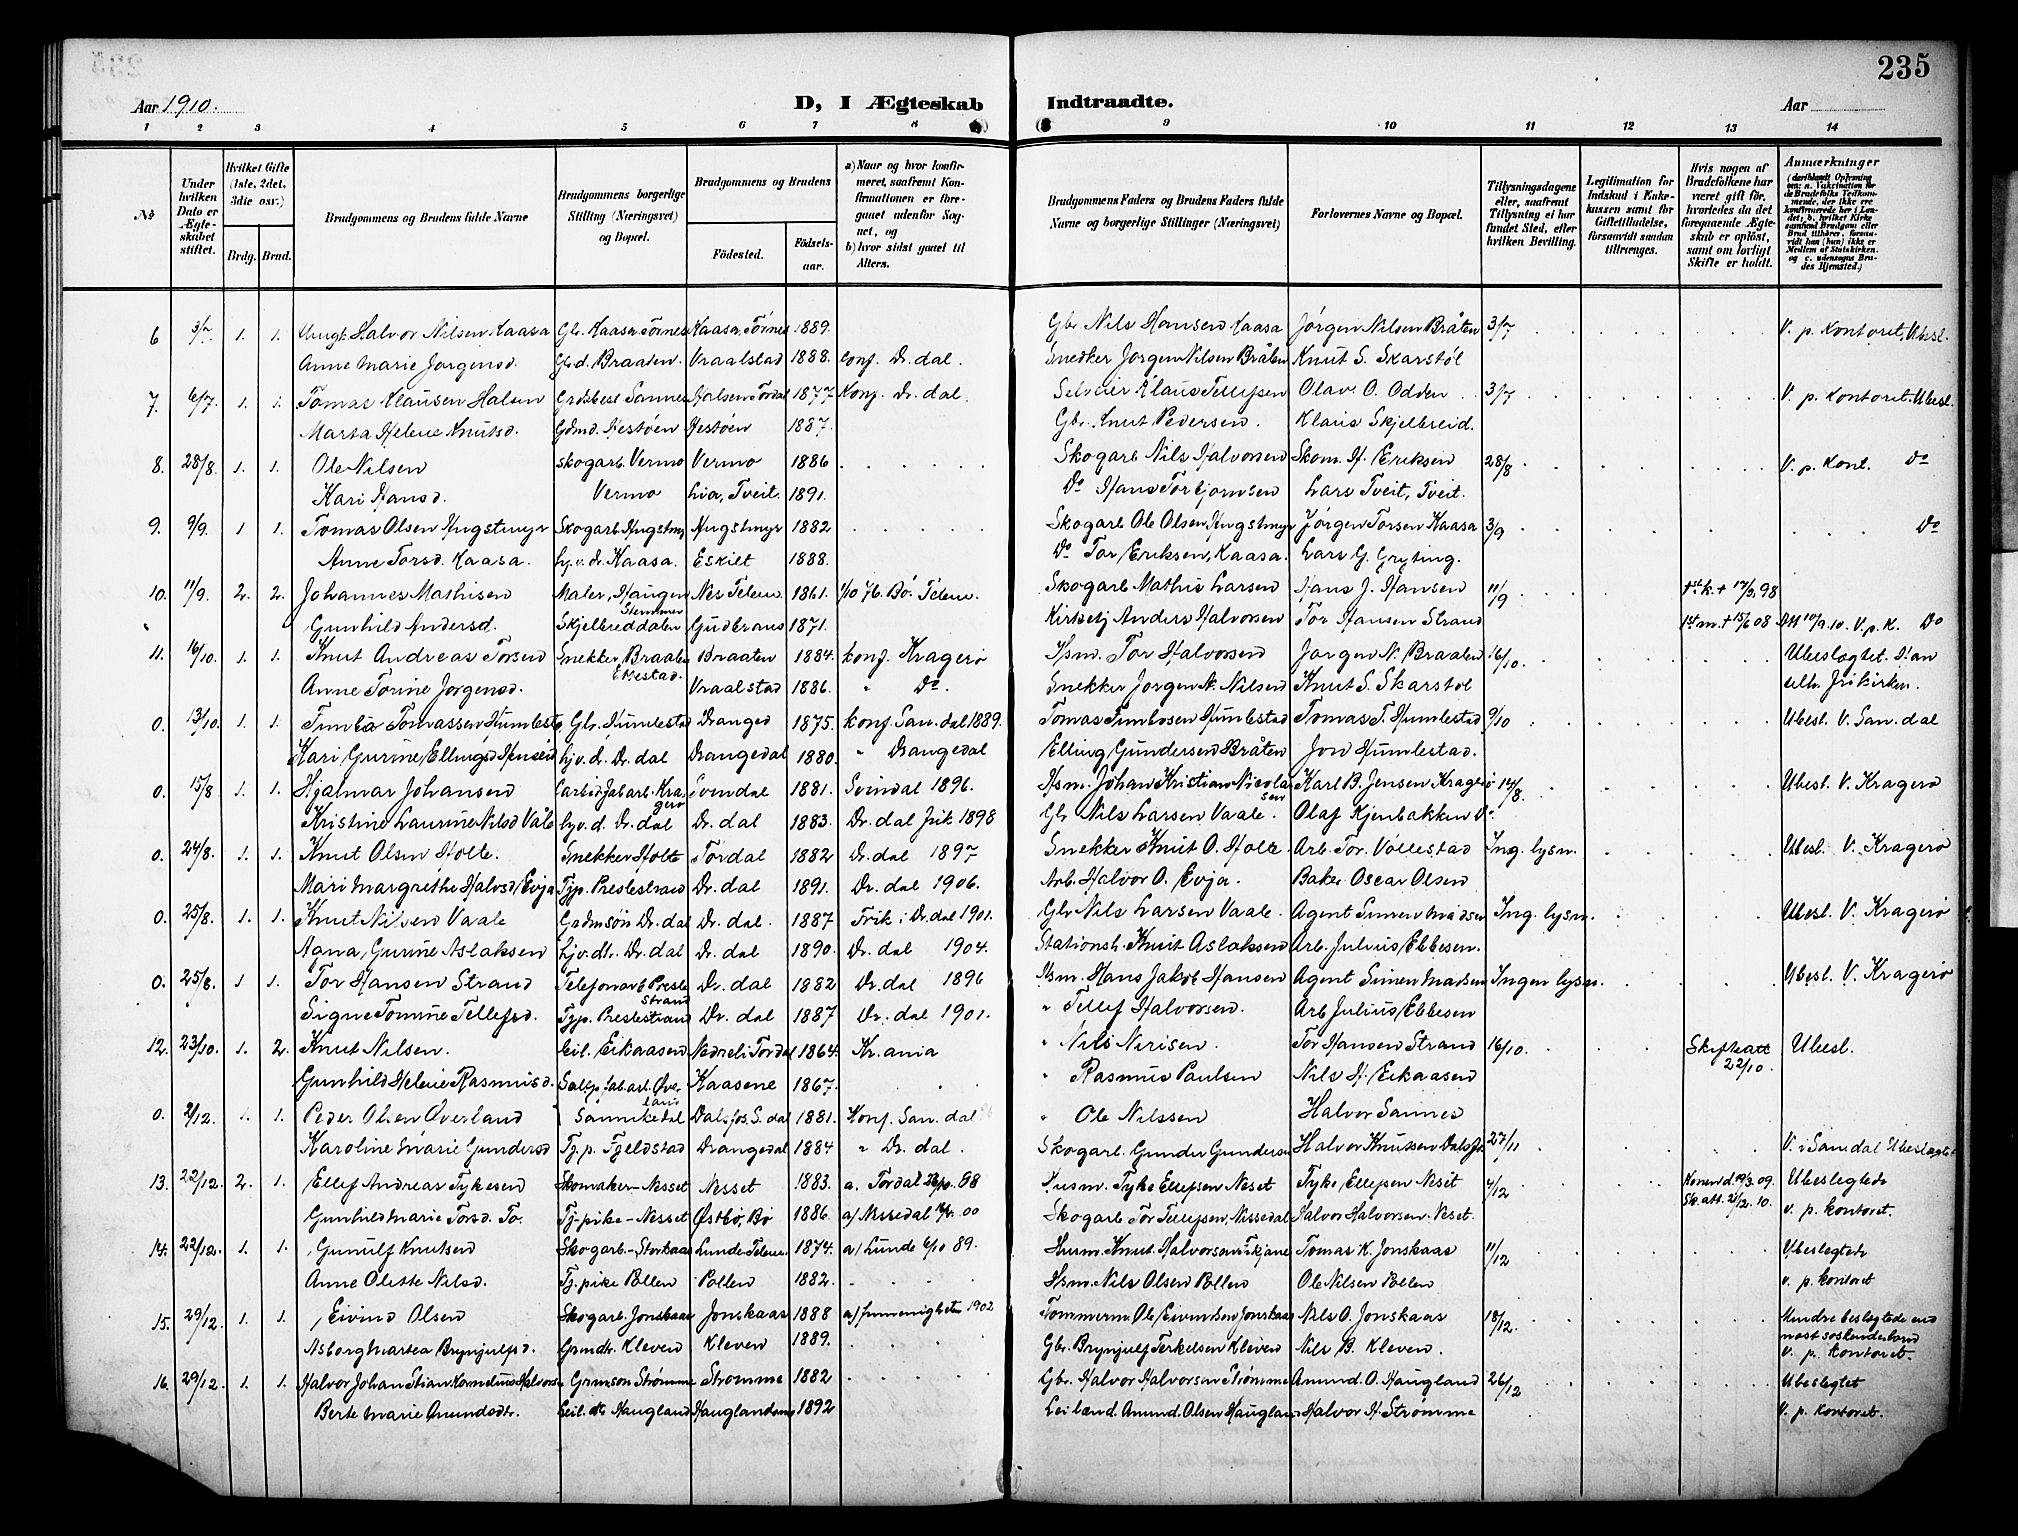 235
Aar 1910.
D, I Ægteskab Indtraadte.
Aar
1 2 3 4 5 6 7 8 9 10 11 12 13 14
No
Under hvilken Dato er Ægteskabet stiftet.
Hvilket Gifte (1ste, 2det, 3die osv.)
Brdg. Brud.
Brudgommens og Brudens fulde Navne
Brudgommens borgerlige Stilling (Næringsvei) og Bopæl.
Brudgommens og Brudens
Fødested.
Fødselsaar.
a) Naar og hvor konfirmeret, saafremt Konfirmationen er foregaaet udenfor Sognet, og
b) hvor sidst gaaet til Alters.
Brudgommens Faders og Brudens Faders fulde Navne og borgerlige Stillinger (Næringsvei)
Forlovernes Navne og Bopæl.
Tillysningsdagene eller, saafremt Tillysning ei har fundet Sted, efter hvilken Bevilling.
Legitimation for Indskud i Enkekassen samt for Giftetilladelse, forsaavidt saadan tiltrænges.
Hvis nogen af Brudefolkene har været gift før, hvorledes da det foregaaende Ægteskab er opløst, samt om lovligt Skifte er holdt.
Anmærkninger (deriblandt Oplysning om: a. Vaksination for de Brudefolks Vedkommende, der ikke ere konfirmerede her i Landet; b. hvilket Kirkesamfund Brudgom eller Brud tilhører, forsaavidt han (hun) ikke er Medlem af Statskirken, og c. udensogns Brudes Hjemsted.)
6 3/7 1. 1. Ungk. Halvor Nilsen Kaasa Gbr. Kaasa, Tørnes Kaasa, Tørnes 1889. Gbr Nils Hansen Kaasa Jørgen Nilsen Bråten 3/7 V. p. Kontoret, Ubesl.
Anne Marie Jørgensd. Gbd. Braaten Vraalstad 1888. Conf. Dr. dal. Snedker Jørgen Nilsen Bråten Knut S. Skarstøl
7. 6/7. 1. 1. Tomas Klausen Halsen Grdsbest Sannes Halsen Tørdal 1877 Konf. Dr. dal. Selveier Klaus Tellefsen Olav O. Odden 3/7 V. p. Kontoret. Ubesl.
Marta Helene Knutsd. Gdmd. Restøen Restøen 1887. Gbr. Knut Pedersen. Klaus Skjelbreid.
8. 28/8. 1. 1. Ole Nilsen skogarb. Vermo Vermo 1886 Skogarb Nils Halvorsen Skom. H. Eriksen 28/8 V. p. Kont. Do
Kari Hansd. Vermo Lia, Tveit. 1891. Do Hans Torbjørnsen Lars Tveit, Tveit.
9. 9/9. 1 1. Tomas Olsen Hugstmyr Skogarb. Hugstmyr Hugstmyr 1882 Skogarb Ole Olsen Hugstmyr Jørgen Torsen Kaasa 3/9 Do
Anne Torsd. Kaasa. hj.v.dr. Kaasa. Eskilt 1888. Do Tor Eriksen, Kaasa. Lars G. Gryting.
10. 11/9. 2. 2. Johannes Mathisen Maler, Haugen Nes Telem. 1861. 1/10 76. Bø. Telem. Skogarb Mathis Larsen Hans J. Hansen 11/9 1st k. + 17/3 98
Gunhild Andersd. Stemmen Skjelbreddalen Gudbrans 1871. Kirketj Anders Halvorsen Tor Hansen Strand 1st m. + 15/6 08 Att 10/9. 10. V. p. K. Do
11. 16/10. 1. 1. Knut Andreas Torsen Snekker, Braaten Ekestad. Braaten 1884. konf. Kragerø Hsm. Tor Halvorsen Jørgen N. Braaten 16/10. Ubeslægtet. Han
Anne Torine Jørgensd. Vraalstad 1886. " Do. Snekker Jørgen N. Nilsen Knut S. Skarstøl tilh. Frikirken.
0. 13/10. 1. 1. Tomassen Humlestad Gbr. Humlestad Dranged 1875. konf. San.dal 1889. Tomas Humlestad Tomas T. Humlestad 9/10 Ubesl. V. San.dal
Kari Gurine Ellingsd hj.v.d. Dr. dal Drangedal 1880. " Drangedal Elling Gundersen Bråten Jon Humlestad.
0. 15/8 1. 1. Hjalmar Johansen Carbidfabarb. Kragerø Svendal 1881. Svindal 1896. Hsm. Johan Kristian Nicolaisen Karl B. Jensen Kragerø 14/8. Ubesl. V. Kragerø
Kristine Laurine Nilsd Våle hj.v.d. Dr. dal Dr. dal 1883. Dr. dal frik 1898 Gbr Nils Larsen Vaale. Olaf Kjenbakken Do
0. 24/8. 1. 1. Knut Olsen Holte. Snekker Holte Tørdal 1882 Dr. dal 1897 Snekker Knut O. Holte. Arb. Tor. Vøllestad Ing. lysn. Ubesl. V. Kragerø
Mari Margrethe Halvsd Evja Typ. Prestestrand Dr. dal 1891. Dr. dal 1906. Arb. Halvor O. Evja. Baker Oscar Olsen
0. 25/8. 1. 1. Knut Nilsen Vaale Gadmsøn Dr. dal Dr. dal. 1887 Frik i Dr. dal 1901. Gbr Nils Larsen Vaale. Agent Simen Madsen Ing. lysn. Ubesl. V. Kragerø
Anna, Gurine Aslaksen hj.v.dtr. Dr. dal Dr. dal 1890. Dr. dal 1904. Stationsb. Knut Aslaksen Arb. Julius Ebbesen.
0. 25/8. 1 1. Tor Hansen Strand Telefonarb Prestestrand Dr. dal 1882 Dr. dal 1896 Hsm. Hans Jakob Hansen Agent Simen Madsen Ingen lysn. Ubesl. V. Kragerø
Signe Tomine Tellefsd. Typ. Prestestrand Dr. dal 1887 Dr. dal 1901. " Tellef Halvorsen. Arb Julius Ebbesen
12. 23/10. 1. 2. Knut Nilsen. Leil. Eikaasen Nedreli Tørdal 1864. Kr.ania " Nils Nirisen. Tor Hansen Strand 16/10. Skifteatt 22/10. Ubesl.
Gunhild Helene Rasmusd. Kaasene 1867. " Rasmus Paulsen Nils H. Eikaasen
0. 2/12. 1. 1. Peder Olsen Øverland Sannikedal Dalsfos. S. dal 1881. Konf. San. dal " Ole Nilssen Halvor Sannes
Karoline Marie Gundersd Tj. p. Fjeldstad Drangedal 1884 " Dr. dal. Skogarb. Gunder Gundersen Halvor Knutsen Dalsfos 27/11 V. i San. dal Ubeslægtet
13. 22/12. 2. 1. Ellef Andreas Tykesen Skomaker - Nesset Nesset 1883. a. Tørdal 98 Husm. Tyke Ellefsen Neset Tyke Ellefsen Neset 4/12 Konen d. 19/3. 09. Ubeslegtede
Gunhild Marie Torsd. To. Tj. pike - Nesset Østbø, Bø 1886. a/ Nissedal 00 Skogarb Tor Tellefsen, Nissedal Halvor Halvorsen Neset. Sk. att. 21/12. 10. v. p. kontoret.
14. 22/12. 1. 1. Gunulf Knutsen Skogarb. - Storkaas Lunde Telem. 1874. a/ Lunde 6/10 89. Husm. Knut Halvorsen Tomas K. Jonskaas 11/12 Ubeslegtede
Anne Olette Nilsd. Tj. pike Pollen Pollen 1882. Hsm. Nils Olsen Pollen Ole Nilsen Pollen v. p. kontoret
15. 29/12. 1. 1. Eivind Olsen Skogarb. Jonskaas Jonskaas 1888 a/ frimenigheten 1902 Tømmerm. Ole Eivindsen Jonskaas Nils O. Jonskaas 18/12. Mindre beslegtede end
Asborg Martea Brynjulfsd. Grmdtr. Kleven Kleven 1889. Gbr. Brynjulf Terkelsen Kleven Nils B. Kleven. næst søskendebarn v. p. Kontoret.
16. 29/12. 1. 1. Halvor Johan Stian Kornelius Halvorsen Grmson Strømme Strømme 1882 Gbr. Halvor Halvorsen Strømme Amund. O. Haugland 26/12 Ubeslegtet
Berte Marie Amundsdtr. Leil. dtr Haugland Hauglandsmo 1892 Leilænd. Amund Olsen Haugland Halvor H. Strømme V. p. kontoret.